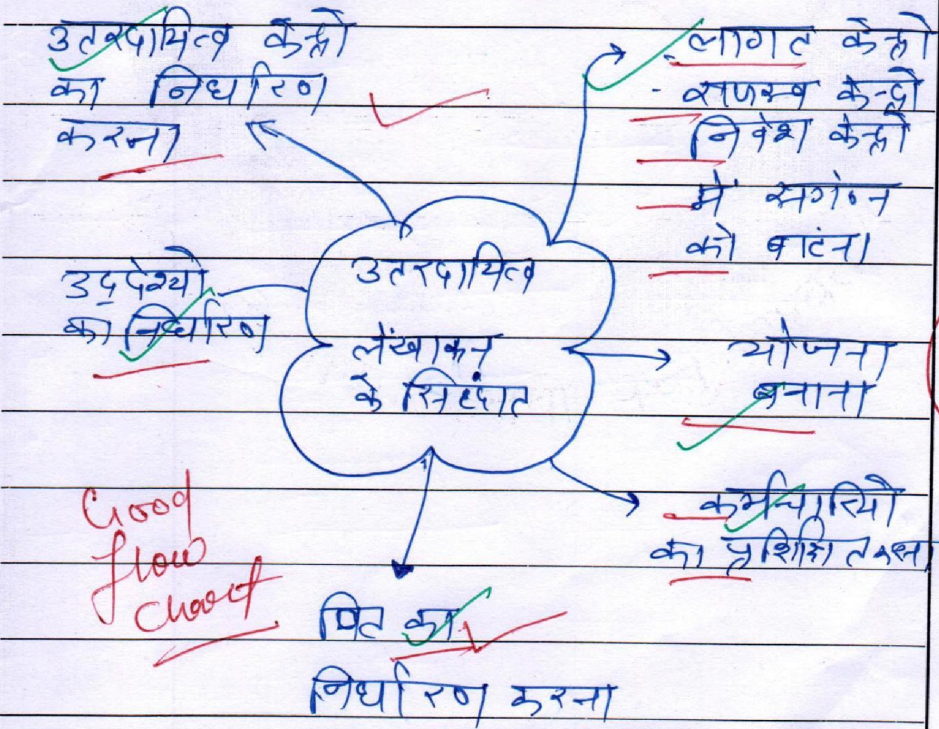 उतरदायित्व केन्द्रो
का निर्धारण
करना
- लागत केन्द्रो
- राजस्व केन्द्रो
निवेश केन्द्रो
में सगंठन
को बाटंना
उद्देश्यो
का निर्धारण
उतरदायित्व
लेंखाकन
के सिद्दांत
योजना
बनाना
कर्मचारियो
का प्रशिक्षित करना
Good
flow
chart
वित का
निर्धारण करना